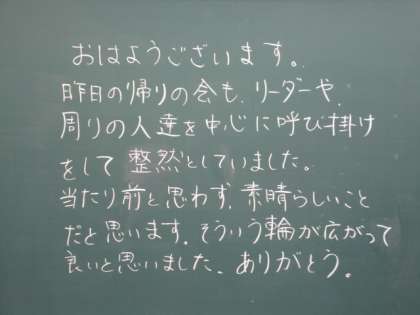 おはようございます。
昨日の帰りの会も、リーダーや、
周りの人達を中心に呼び掛け
をして整然としていました。
当たり前と思わず、素晴らしいこと
だと思います。そういう輪が広がって
良いと思いました、ありがとう。